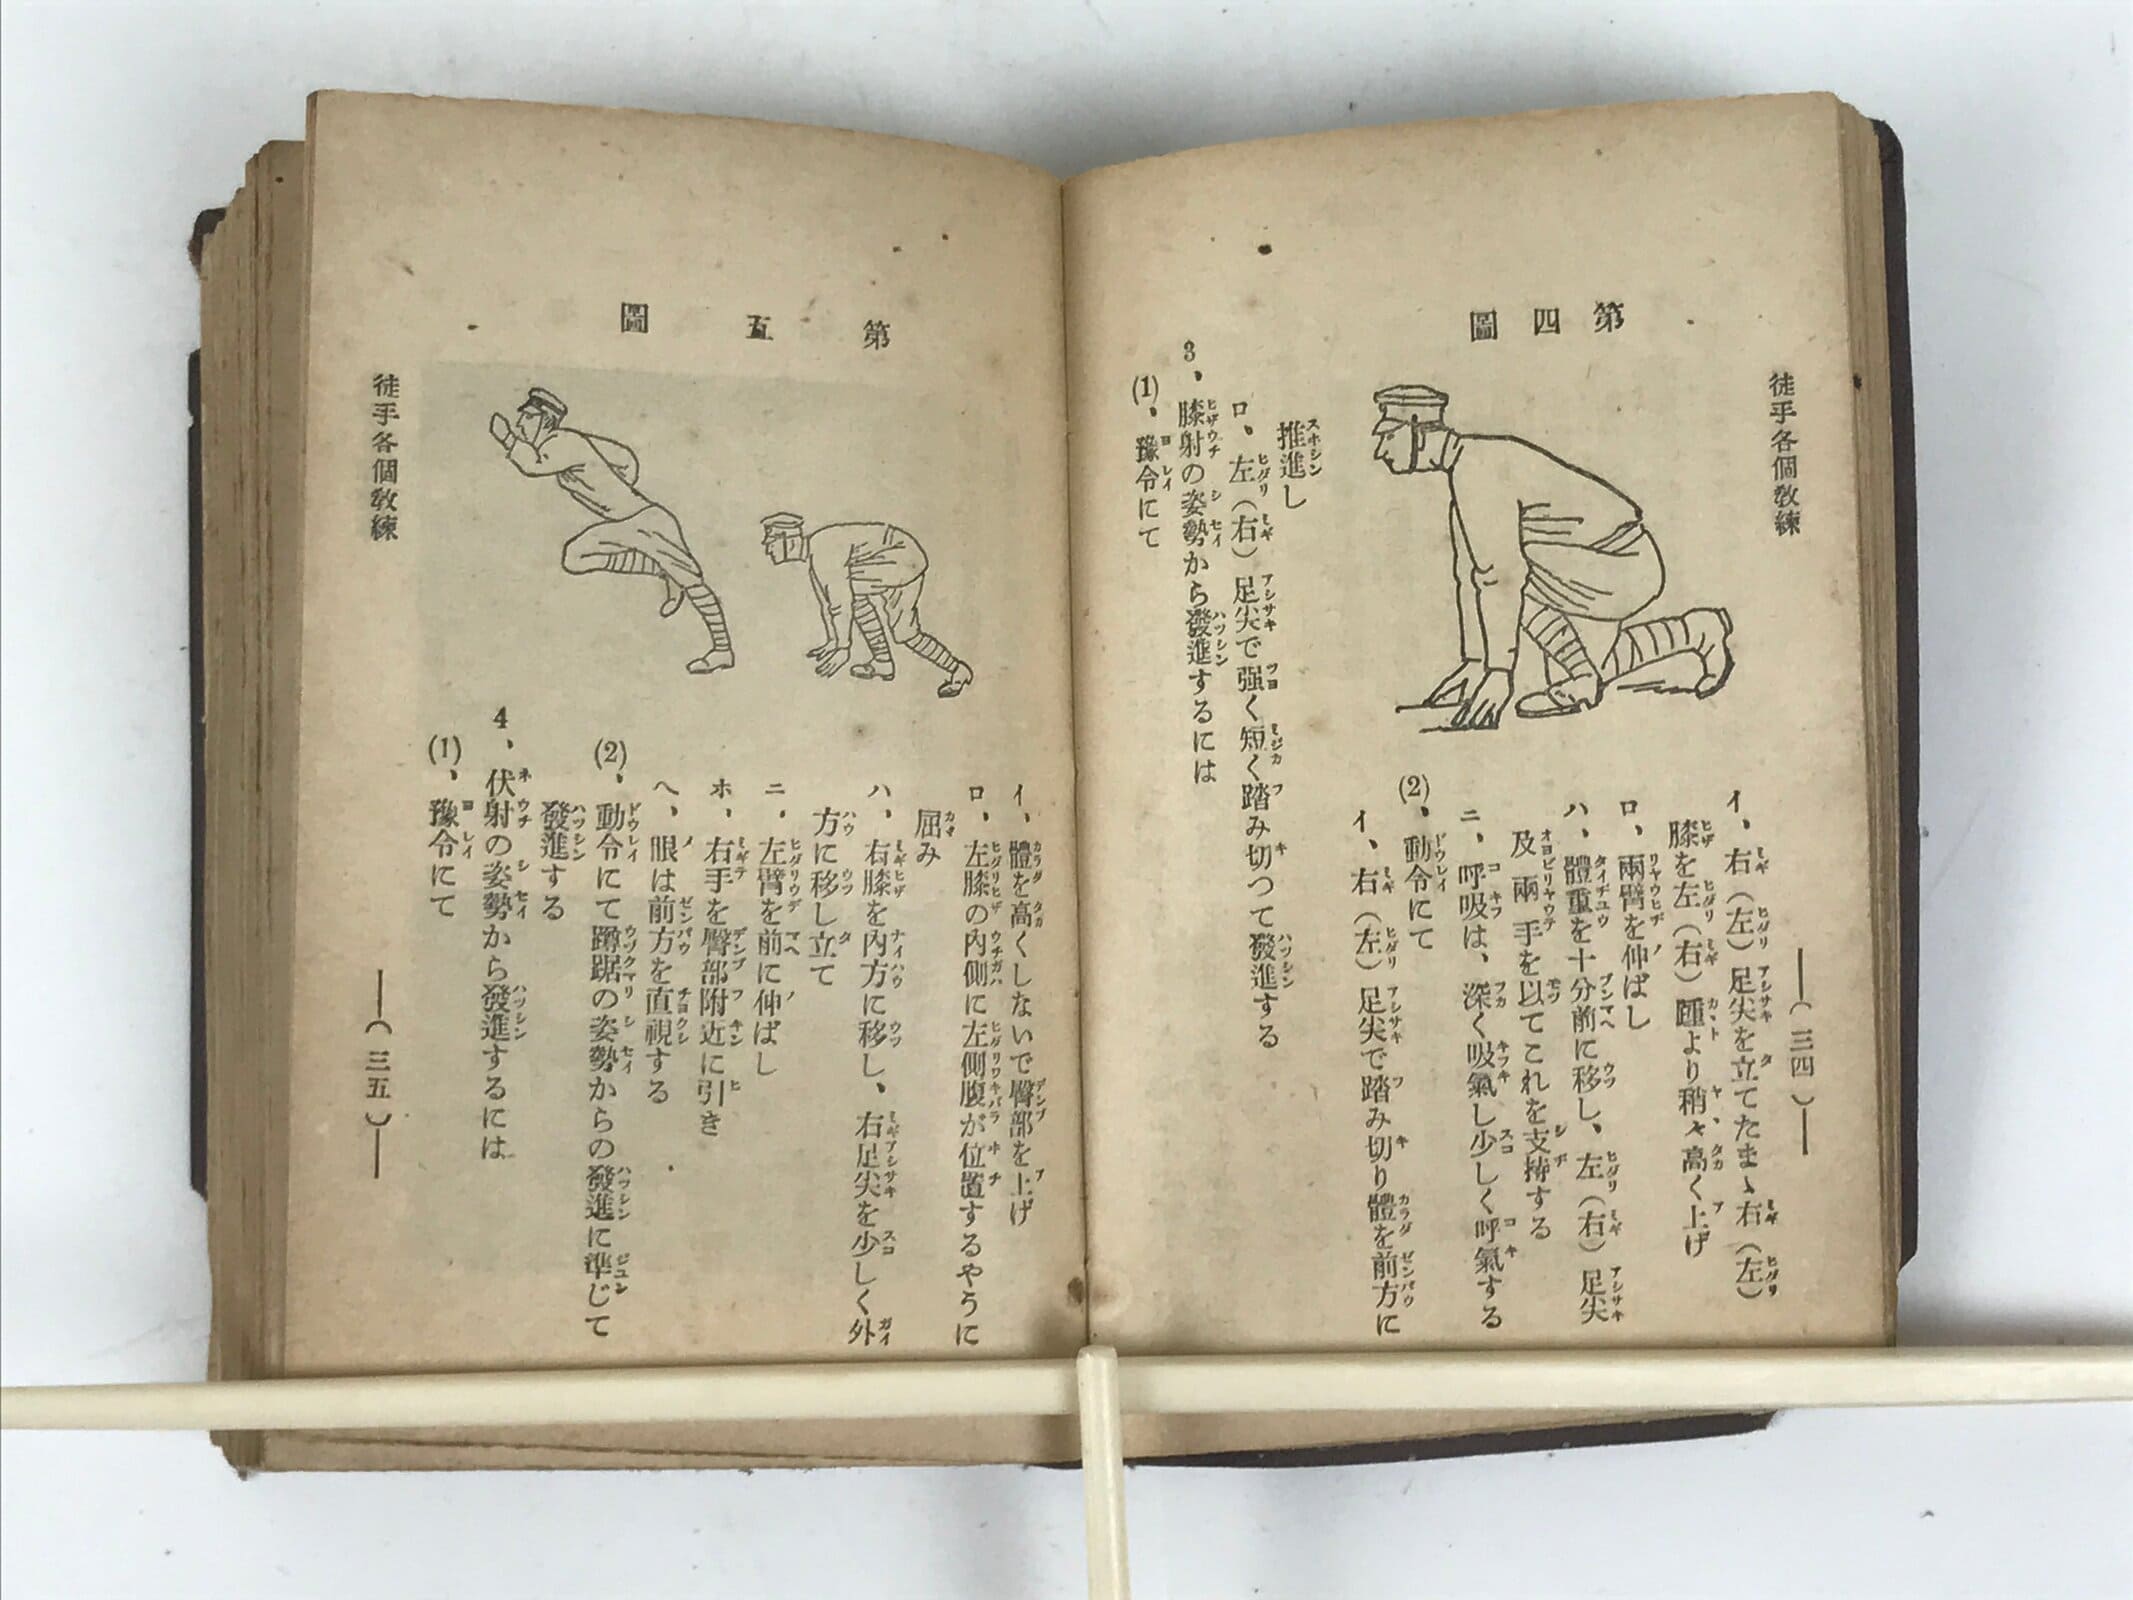 徒手各個教練
―(三四)―
第四圖
イ、右(左)足尖を立てたまゝ右(左)
膝を左(右)踵より稍々高く上げ
ロ、兩臂を伸ばし
ハ、體重を十分前に移し、左(右)足尖
及兩手を以てこれを支持する
ニ、呼吸は、深く吸氣し少しく呼氣する
(2)、動令にて
イ、右(左)足尖で踏み切り體を前方に
推進し
ロ、左(右)足尖で强く短く踏み切つて發進する
3、膝射の姿勢から發進するには
(1)、豫令にて
第五圖
イ、體を高くしないで臀部を上げ
ロ、左膝の內側に左側腹が位置するやうに
屈み
ハ、右膝を內方に移し、右足尖を少しく外
方に移し立て
ニ、左臂を前に伸ばし
ホ、右手を臀部附近に引き
ヘ、眼は前方を直視する
(2)、動令にて蹲踞の姿勢からの發進に準じて
發進する
4、伏射の姿勢から發進するには
(1)、豫令にて
徒手各個教練
―(三五)―